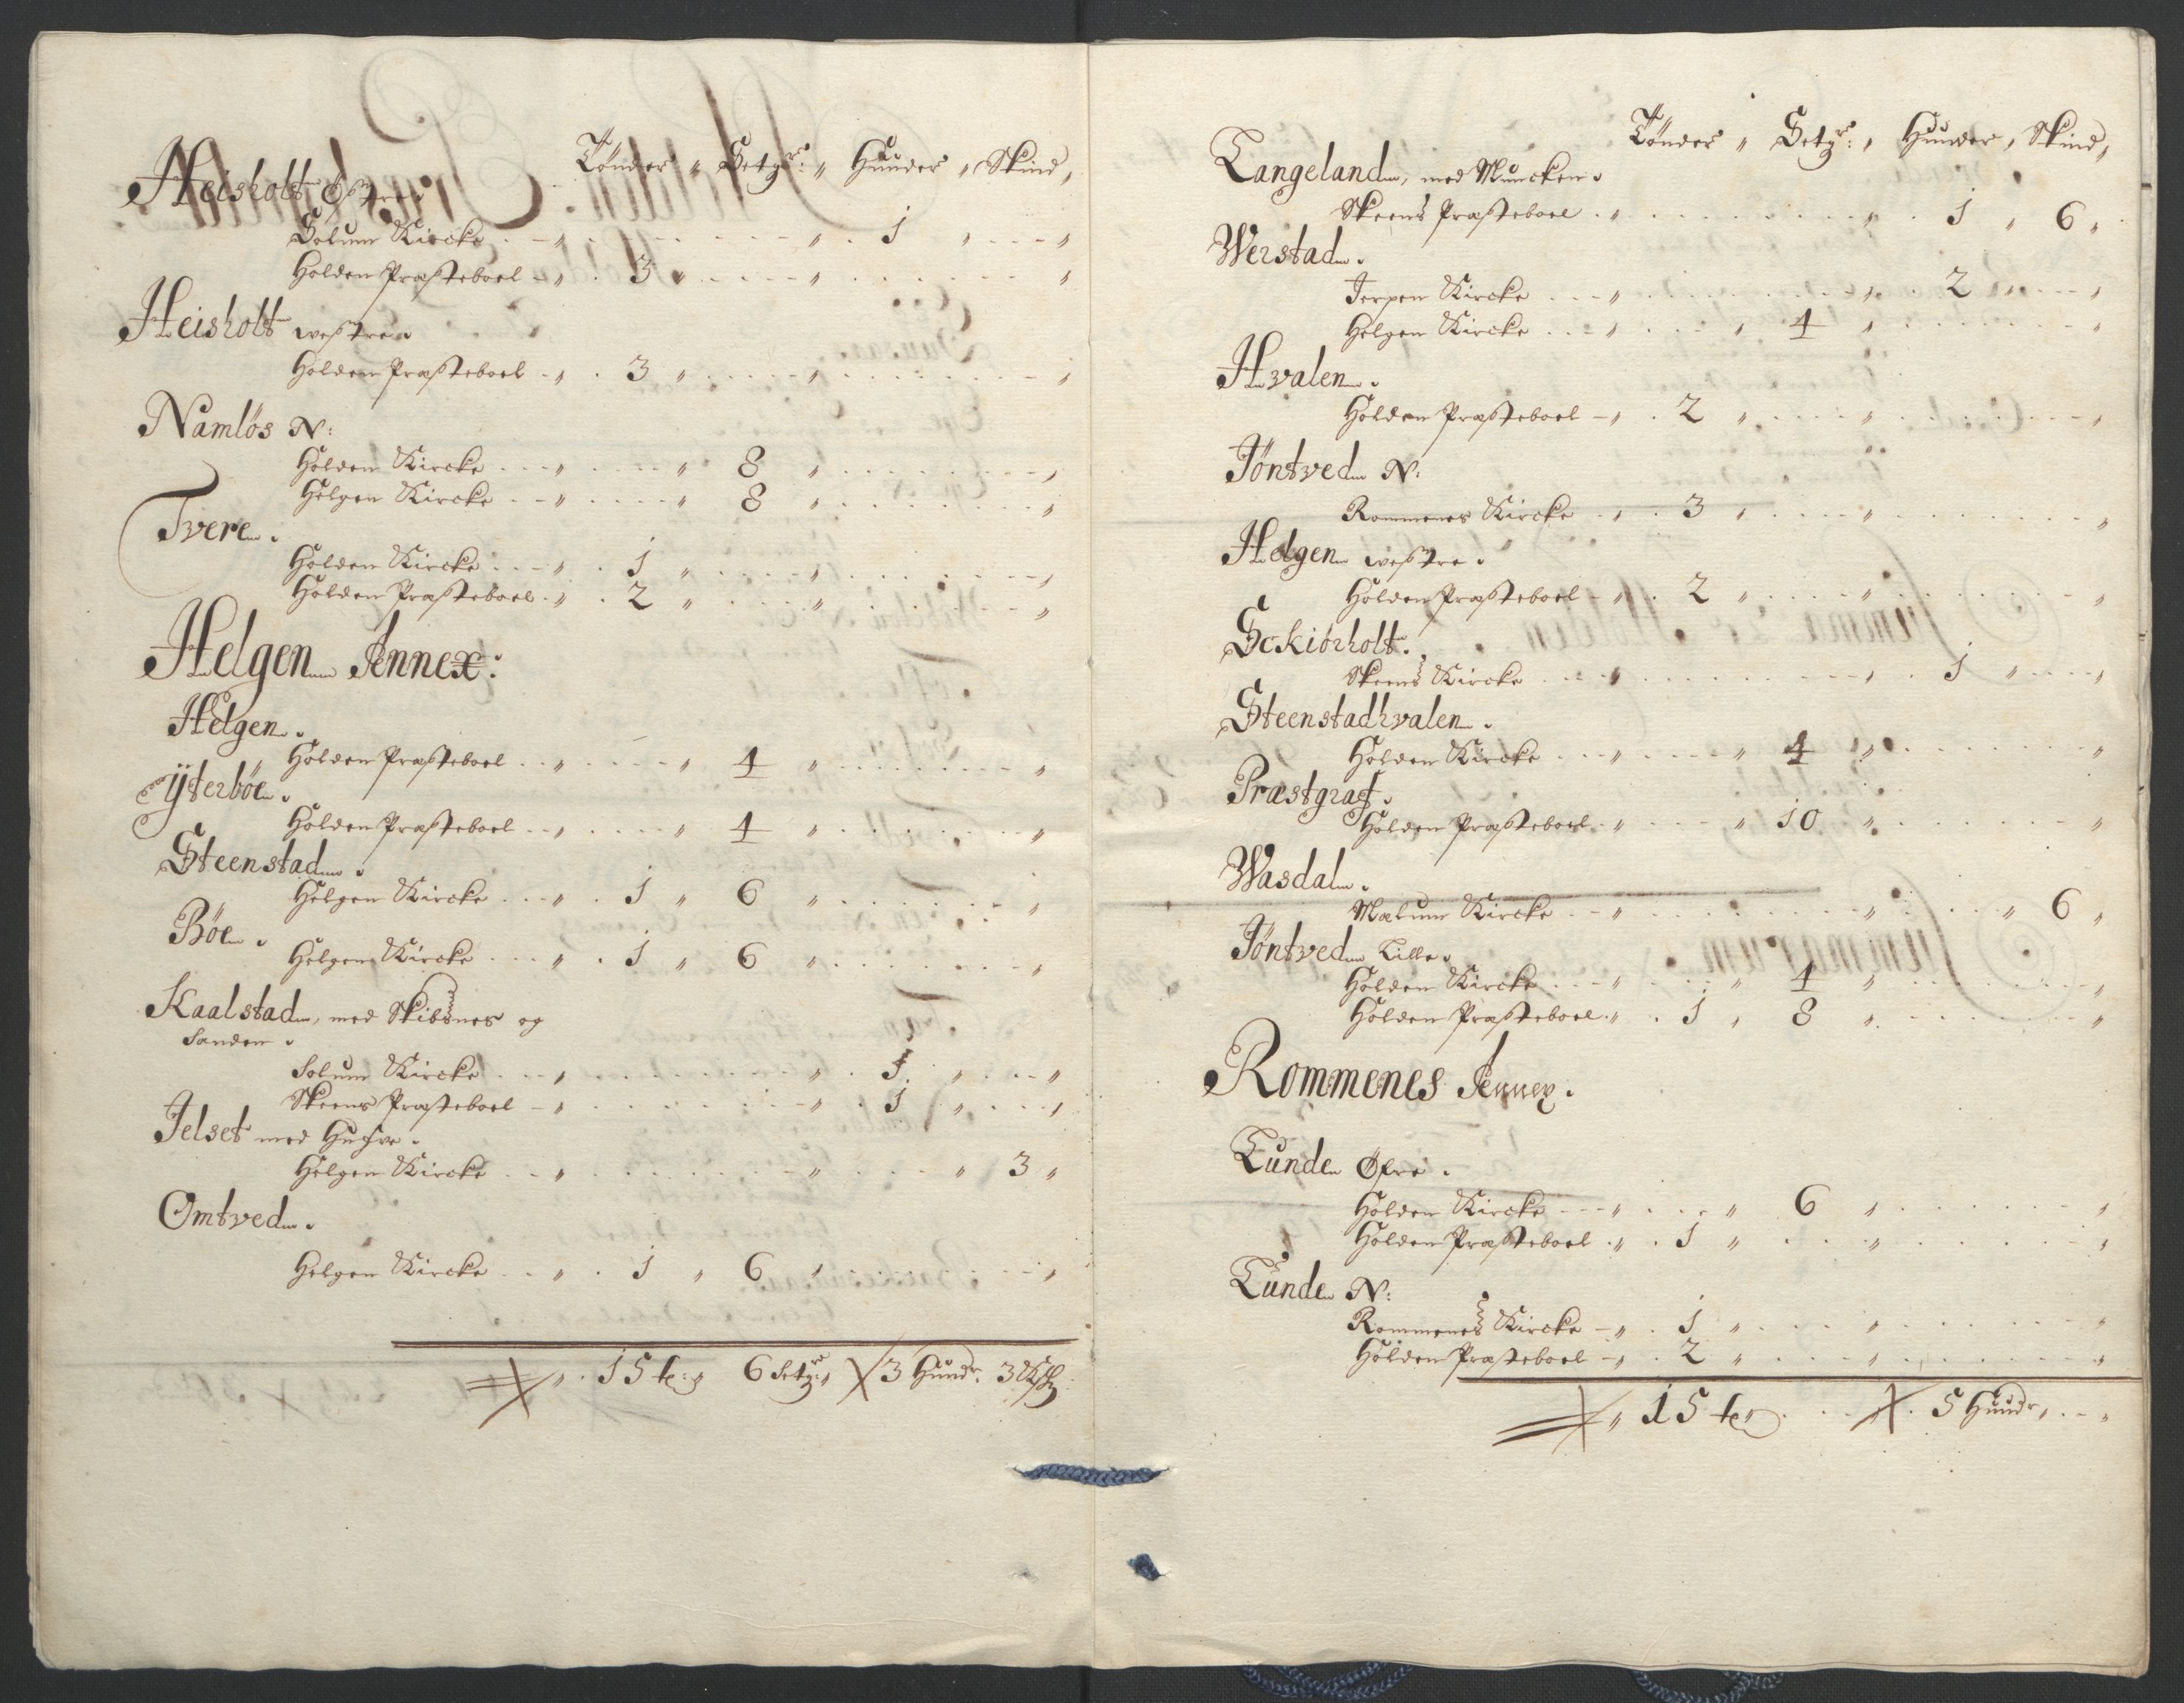 Tönder „ Setgr: „ Hunder „ Skind,
Heisholt Østre.
Solum Kircke . – „ . . . . „ . 1 „ . . . „
Holden Præsteboel – „ . 3 „ . . . . „ . . . . „
Heisholt westre.
Holden Præsteboel – „ . 3 „ . . . . „ . . . . „
Namlös N:
Holden Kircke . . . „ . . . . „ 8 „ . . . . „
Helgen Kircke . . . „ . . . . „ 8 „ . . . . „
Tvere.
Holden Kircke . . . „ . 1 „ . . . . „ . . . . „
Holden Præsteboel . „ . 2 „ . . . . „ . . . . „
Helgen Annex:
Helgen.
Holden Præsteboel . . „ . . . . „ 4 „ . . . . „
Ÿterböe.
Holden Præsteboel . . „ . . . . „ 4 „ . . . . „
Steenstad.
Helgen Kircke . . . „ . 1 „ 6 „ . . . . „
Böe.
Helgen Kircke . . . „ . 1 „ 6 „ . . . . „
Kaalstad, med Skibsnes og
Sanden.
Solum Kircke . . . „ . . . . „ . 1 „ . . . „
Skeens Præsteboel – „ . . . . „ . 1 „ . . . „
Jelset med Hugſve.
Helgen Kircke . . . „ . . . . „ . . . . „ 3 „
Omtved.
Helgen Kircke . . . „ . 1 „ 6 „ . . . . „
„ . 15 te: „ 6 Setgr: „ 3 Hundr. 3
Tönder „ Setgr: „ Hunder „ Skind,
Langeland, med Muncken.
Skeens Præsteboel . „ . . . . „ . 1 „ 6 „
Werstad.
Jerpen Kircke . . . „ . . . . „ . 2 „ . . . „
Helgen Kircke . . . „ . . . . „ 4 „ . . . . „
Hvalen.
Holden Præsteboel – „ . 2 „ . . . . „ . . . . „
Jöntved N:
Rommenes Kircke . „ . 3 „ . . . . „ . . . . „
Helgen westre.
Holden Præsteboel – „ . 2 „ . . . . „ . . . . „
Sckiörholt.
Skeens Kircke . . . „ . . . . „ . 1 „ . . . „
Steenstadhvalen.
Holden Kircke . . . „ . . . . „ 4 „ . . . . „
Præstgraf.
Holden Præsteboel . „ . . . . „ 10 „ . . . . „
Wasdal.
Mælum Kircke . . „ . . . . „ . . . . „ 6 „
Jöntved Lille.
Holden Kircke . . . „ . . . . „ 4 „ . . . . „
Holden Præsteboel . „ . 1 „ 8 „ . . . . „
Rommenes Annex.
Lunde Øfre.
Holden Kircke . . . „ . . . . „ 6 „ . . . . „
Holden Præsteboel . „ . 1 „ . . . . „ . . . . „
Lunde N:
Rommenes Kircke – „ . 1 „ . . . . „ . . . . „
Holden Præsteboel – „ . 2 „ . . . . „ . . . . „
„ 15 te „ . . . „ . 5 Hundr, . . „